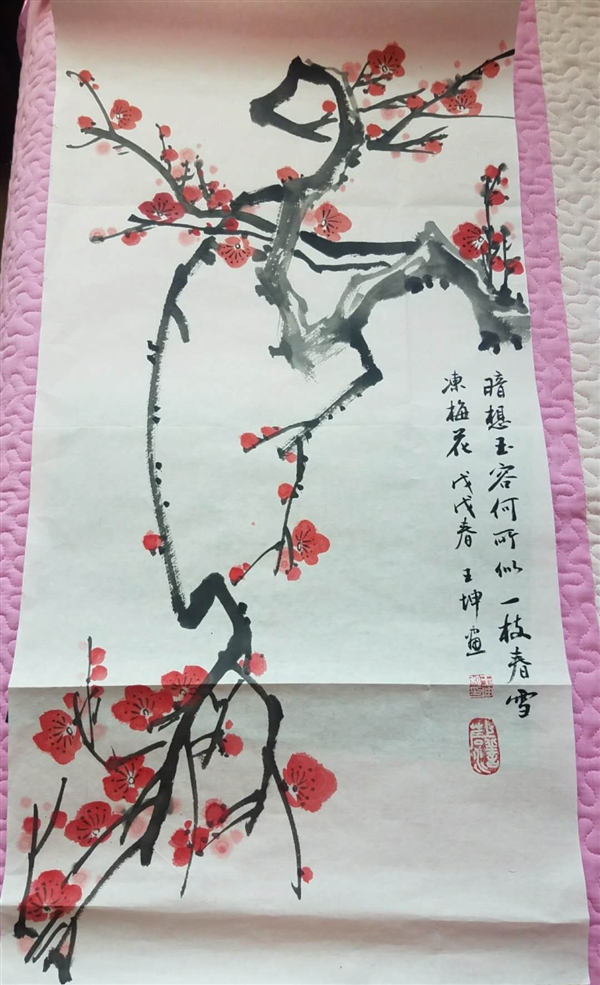 暗想玉容何所似一枝春雪
凍梅花戊戌春王坤画